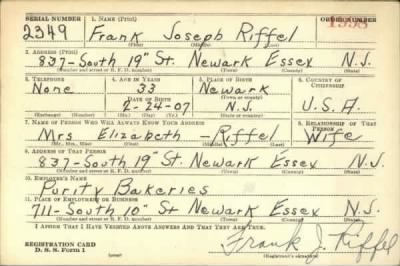 SERIAL NUMBER 1. NAME (Print) ORDER NUMBER
2349 Frank Joseph Riffel 1558
(First) (Middle) (Last)
2. ADDRESS (Print)
837-South 19" St. Newark Essex N.J.
(Number and street or R. F. D. number) (Town) (County) (State)
3. TELEPHONE 4. AGE IN YEARS 5. PLACE OF BIRTH 6. COUNTRY OF CITIZENSHIP
None 33 Newark
(Town or county)
DATE OF BIRTH
-24-07 N.J. U.S.A.
(Exchange) (Number) (Mo.) (Day) (Yr.) (State or country)
7. NAME OF PERSON WHO WILL ALWAYS KNOW YOUR ADDRESS 8. RELATIONSHIP OF THAT PERSON
Mrs Elizabeth - Riffel Wife
(Mr., Mrs., Miss) (First) (Middle) (Last)
9. ADDRESS OF THAT PERSON
837-South 19" St. Newark Essex N.J.
(Number and street or R. F. D. number) (Town) (County) (State)
10. EMPLOYER'S NAME
Purity Bakeries
11. PLACE OF EMPLOYMENT OR BUSINESS
711-South 10" St Newark Essex N.J.
(Number and street or R. F. D. number) (Town) (County) (State)
I AFFIRM THAT I HAVE VERIFIED ABOVE ANSWERS AND THAT THEY ARE TRUE.
REGISTRATION CARD
D. S. S. Form 1 Frank J. Riffel